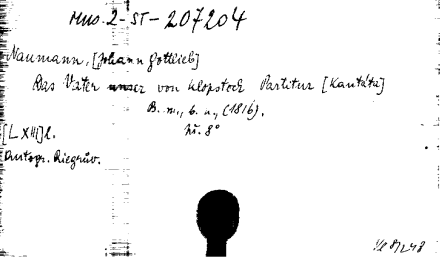 Mus. 2-ST-207204
Naumann, [Johann Gottlieb]
Das Vater unser von Klopstock Partitur [Kantáta]
B. m., b. n., (1816).
8°
[LXIII]l.
Autogr.